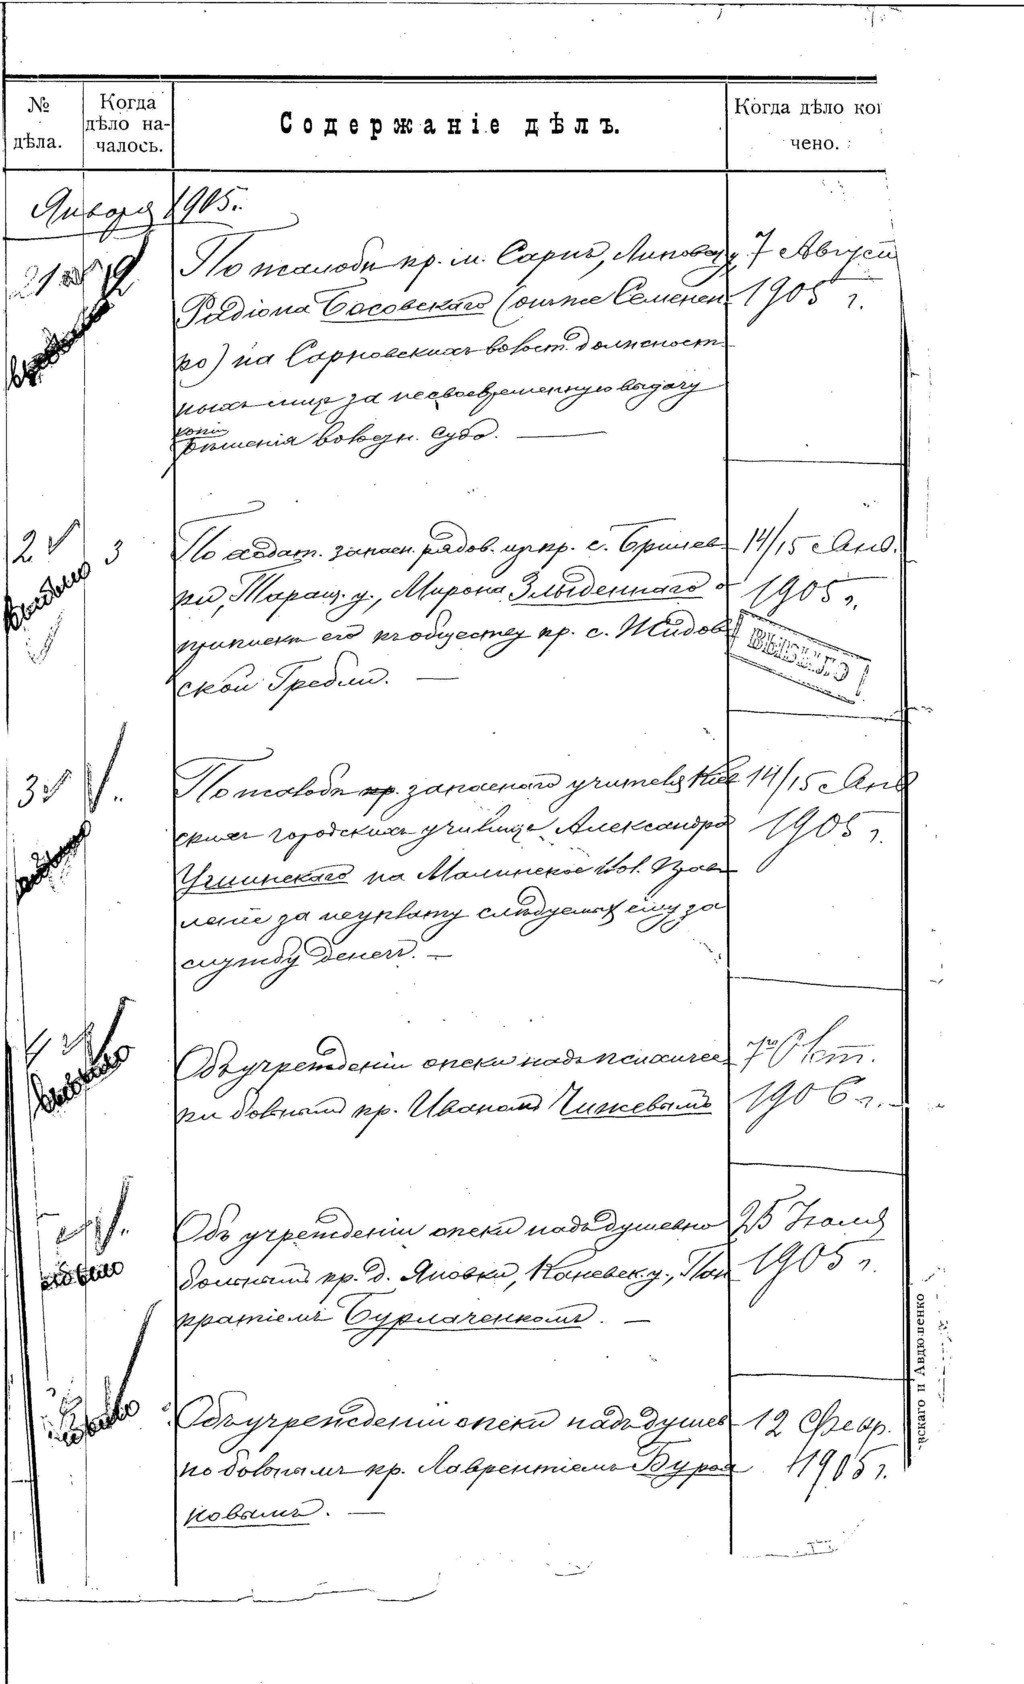 № дѣла.
Когда дѣло на-
чалось.
Содержаніе дѣлъ.
Когда дѣло кон
чено.
Января 1905 г.
По жалобѣ кр. м. Сарнъ, Липовец. у.
Радіона Босовскаго (онъ же Семенен-
ко) на Сарновскихъ волост. должност-
ныхъ лицъ за несвоевременную выдачу
копіи
рѣшенія волостн. суда. —
7 Август
1905 г.
2
выбыло
3
По ходат. запасн. рядов. изъ кр. с. Брилев-
ки, Таращ. у., Мирона Злыденнаго о
припискѣ его къ обществу кр. с. Жидов-
ской Гребли. —
14/15 Янв.
1905 г.
ВЫБЫЛО
3
По жалобѣ кр. запаснаго учителя Кіев
скихъ городскихъ училищъ Александра
Ушинскаго на Малинское Вол. Прав-
леніе за неуплату слѣдуемыхъ ему за
службу денегъ. —
14/15 Янв
1905 г.
4
выбыло
Объ учрежденіи опеки надъ психичес-
ки больнымъ кр. Иваномъ Чижевымъ
7го Окт.
1906 г.
выбыло
Объ учрежденіи опеки надъ душевно
больнымъ кр. д. Яновки, Каневск. у., Пан
кратіемъ Бурлаченкомъ. —
25 Іюля
1905 г.
выбыло
Объ учрежденіи опеки надъ душев-
но больнымъ кр. Лаврентіемъ Бурла
ковымъ. —
12 Февр.
1905 г.
вскаго и Авдюшенко